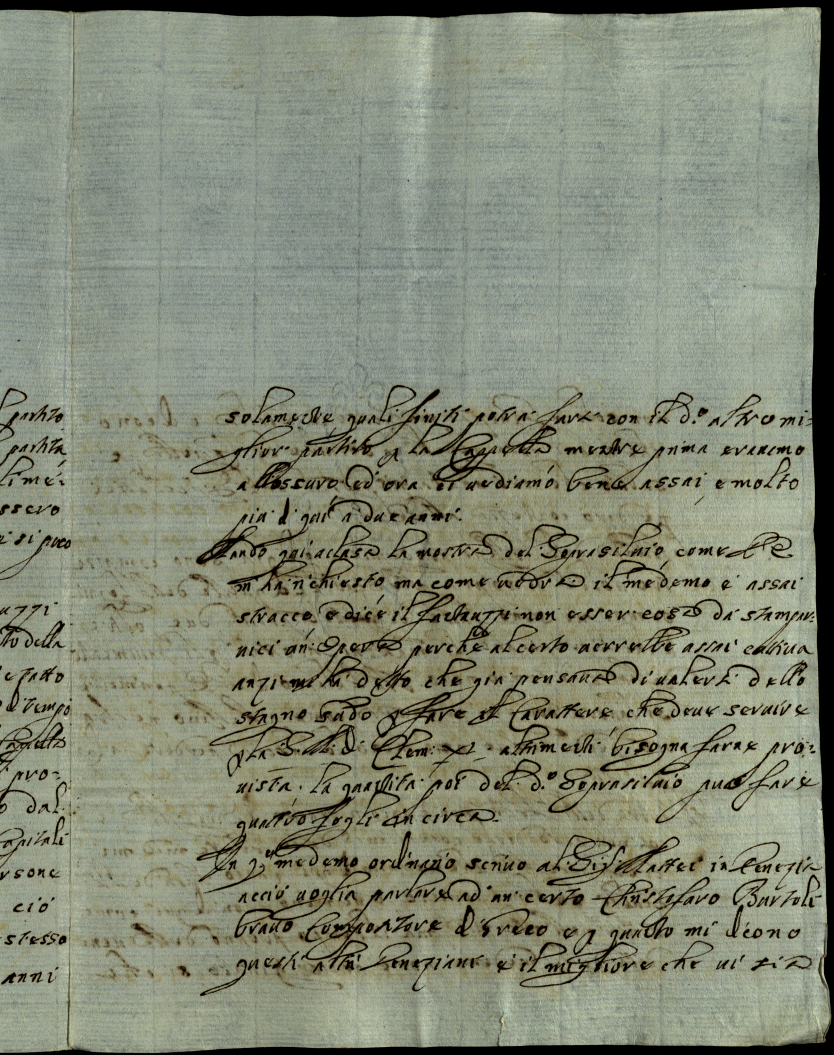 partito
partita
lime:
ssero
e si puo
uzzi
to della
e fatto
di Tempo
Cappella
pro-
o dal
Capitali
rsone
ciò
stesso
anni
solamente quali finiti potrà fare con il d.º altro mi-
glior partito p la Cappella mentre prima eravamo
all'oscuro ed ora ci vediamo bene assai e molto
più di quì a due anni.
Mando quì aclusa la mostra del Soprasilvio come
m'ha richiesto ma come vedrà il medemo è assai
stracco, e dice il non esser cosa da stampar-
vici un'Opera perche al certo verrebbe assai cattiva
anzi mi hà detto che già pensava di valersi dello
stagno sudo p fare il Carattere che deve servire
p la di Clem: XI altrimenti bisogna farne pro-
vista. la quantità poi del d.º Soprasilvio può fare
quattro fogli in circa.
In q.to medemo ordinario scrivo al Sig. Mattei in Venezia
acciò voglia parlare ad un certo Christofaro Bartoli
bravo Compositore di Greco e p quanto mi dicono
questi altri Veneziani è il migliore che vi sia